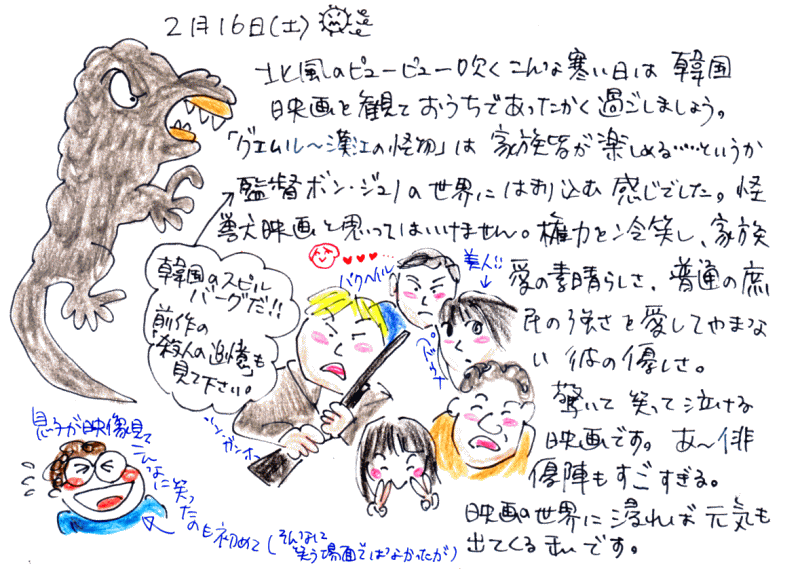 2月16日(土)
北風のピューピュー吹くこんな寒い日は韓国
映画を観ておうちであったかく過ごしましょう。
「グエムル〜漢江の怪物」は家族皆が楽しめる……というか
監督ボン・ジュノの世界にはまり込む感じでした。怪
獣映画と思ってはいけません。権力を冷笑し、家族
愛の素晴らしさ、普通の庶
民の強さを愛してやまな
い彼の優しさ。
驚いて笑って泣ける
映画です。あ〜俳
優陣もすごすぎる。
映画の世界に浸れば元気も
出てくる私です。
韓国のスピル
バーグだ!!
前作の
「殺人の追憶」も
見て下さい。
パクヘイル
美人!!
ペ・ドゥナ
ソン・ガンホ
息子が映像見て
こんなに笑っ
たのも初めて(そんなに
笑う場面ではなかったが)